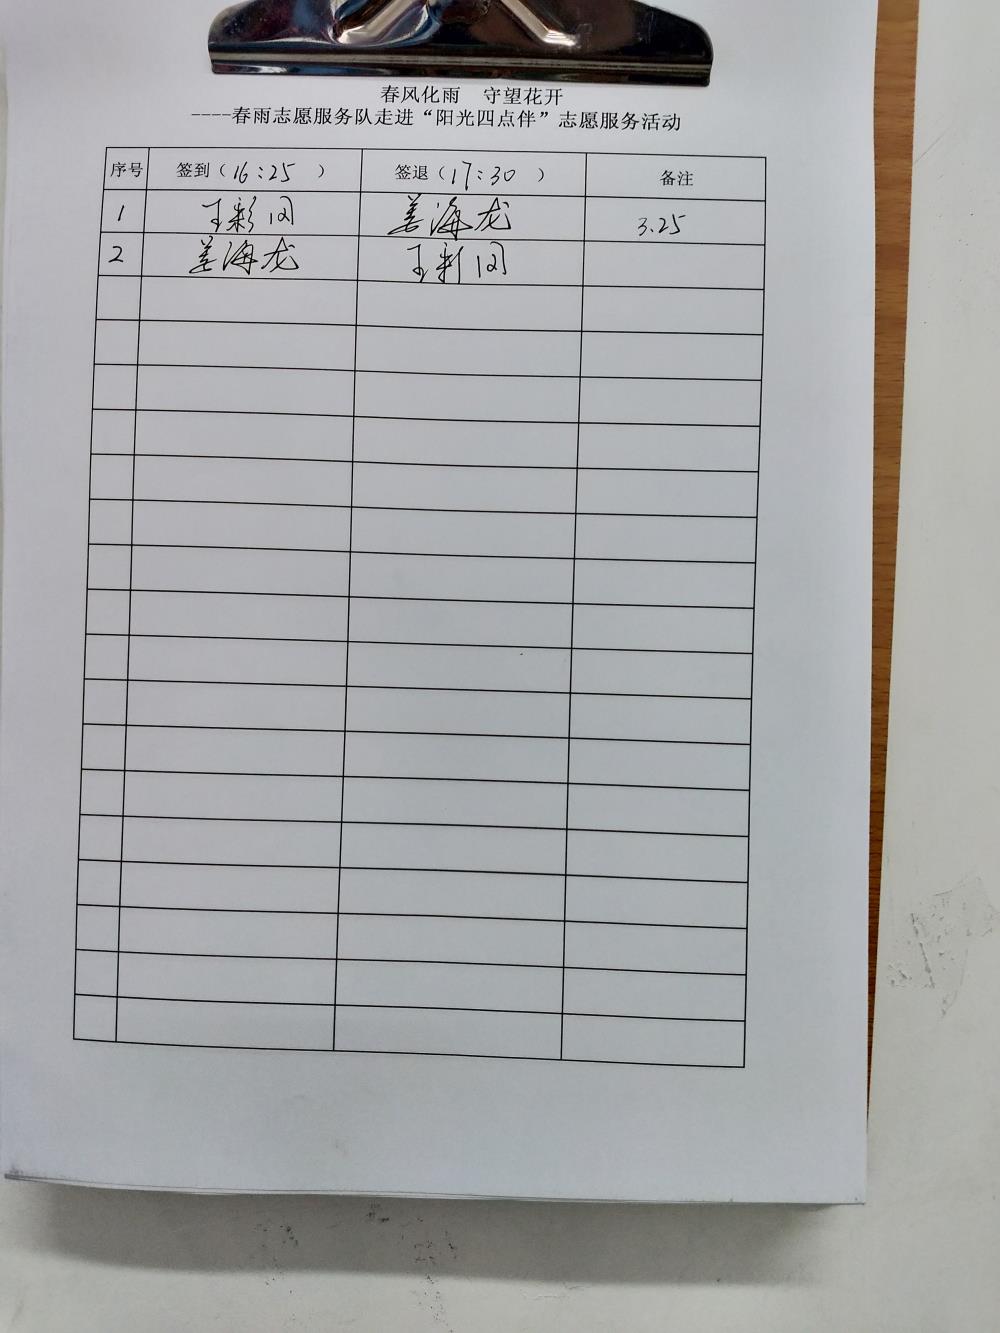 春风化雨 守望花开
----春雨志愿服务队走进“阳光四点伴”志愿服务活动
序号 签到（16:25 ） 签退（17:30 ） 备注
1 王彩闵 姜海龙 3.25
2 姜海龙 王彩闵